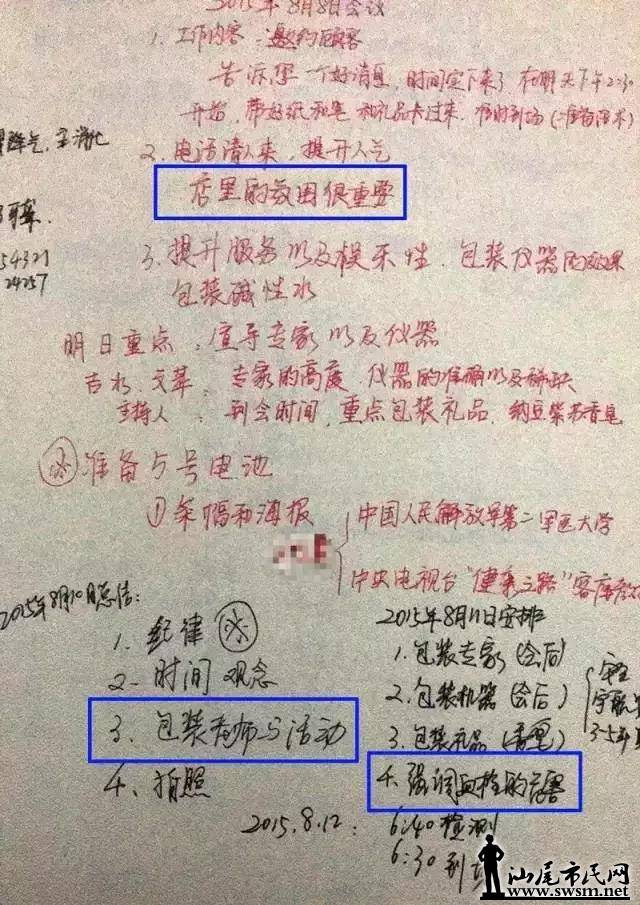 2015年8月8日会议
1. 工作内容：邀约顾客
告诉您一个好消息，时间定下来了 在明天下午2:30
开始，带好纸和笔 和礼品卡过来，准时到场
2. 电话请人来，提升人气
店里的氛围很重要
3. 提升服务以及娱乐性，包装仪器的效果
包装碱性水
54321
24257
明日重点：宣导专家以及仪器
专家的高度，仪器的准确以及稀缺
主持人：到会时间，重点包装礼品，纳豆
准备5号电池
① 条幅和海报
中国人民解放军第二军医大学
中央电视台“健康之路”客座
2015年8月10日总结：
1. 纪律
2. 时间观念
3. 包装老师与活动
4. 拍照
2015年8月11日安排
1. 包装专家（会后）
2. 包装机器（会后）
3. 包装礼品
4. 强调血栓的危害
3-5年
2015.8.12：6:40检测
6:30到
汕尾市民网
www.swsm.net